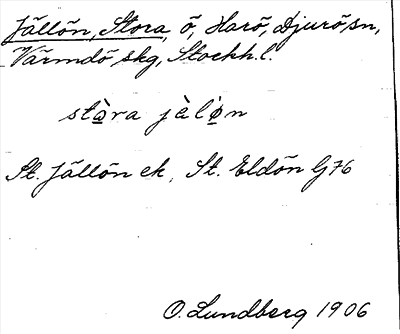 Jällön, Stora, ö, Harö, Djurö sn,
Värmdö skg, Stockh. l.
stòra jälø̀n
St. Jällön ek, St. Eldön G76
O. Lundberg 1906